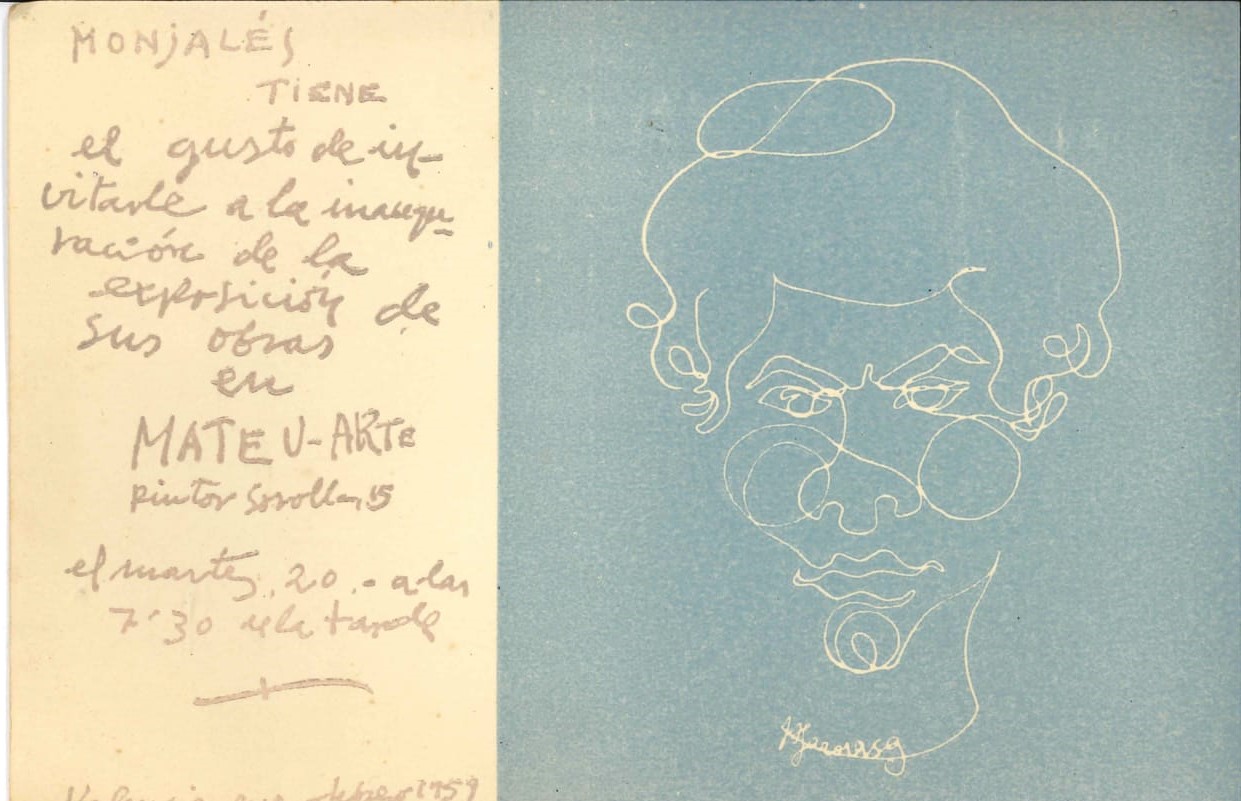 MONJALÉS
TIENE
el gusto de in-
vitarle a la inaugu-
ración de la
exposición de
sus obras
en
MATEU-ARTE
Pintor Sorolla, 15
el martes, 20.- a las
7'30 de la tarde
Valencia febrero 1959